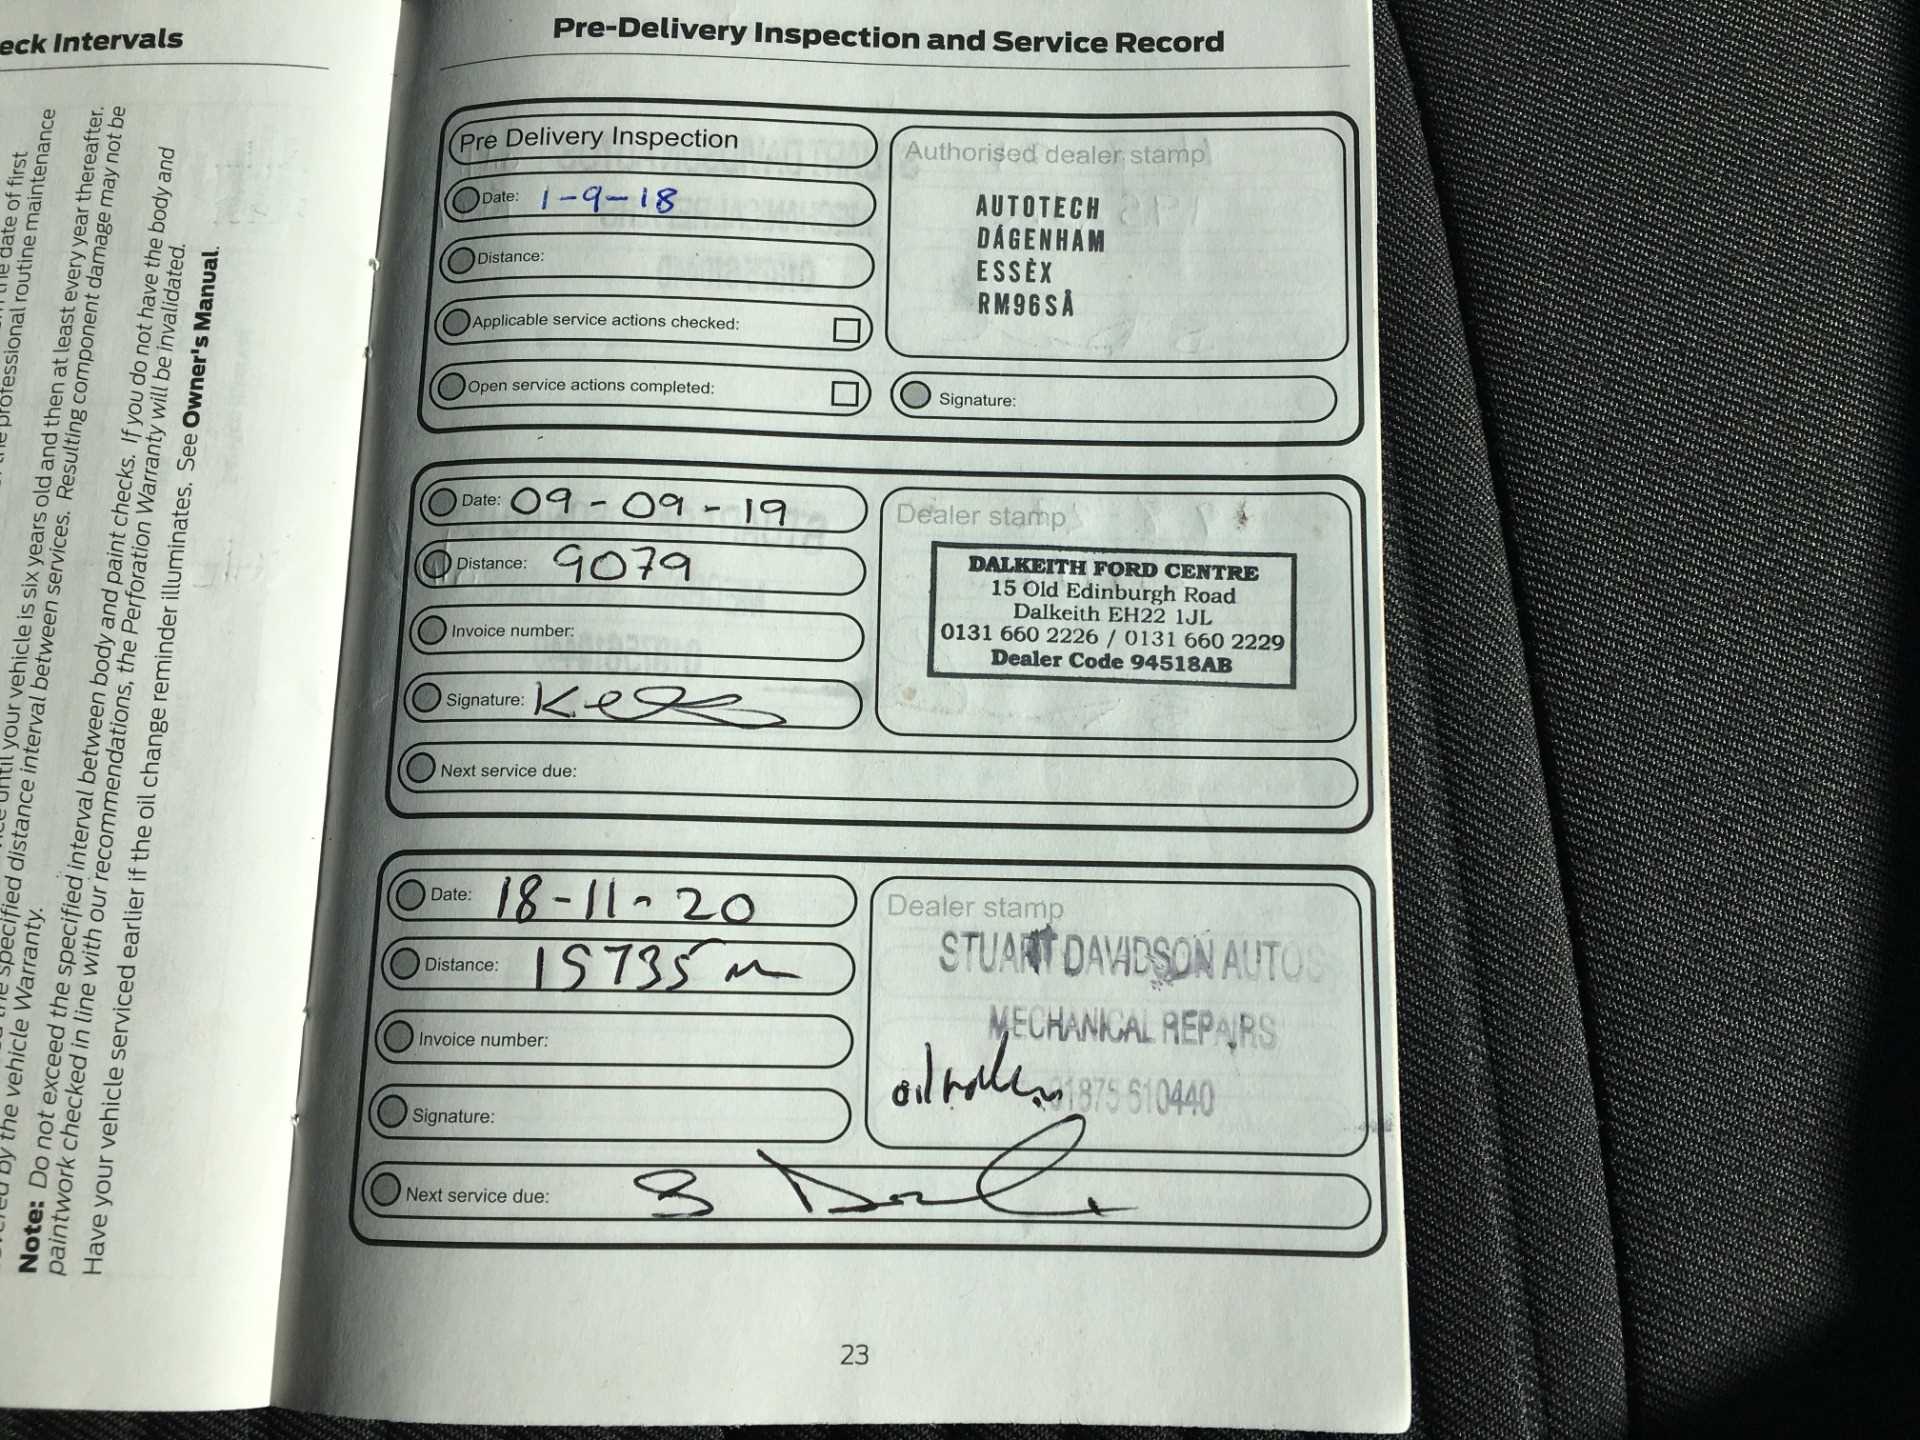 eck Intervals
date of first
the professional routine maintenance
until your vehicle is six years old and then at least every year thereafter.
the specified distance interval between services. Resulting component damage may not be
covered by the vehicle Warranty.
Note: Do not exceed the specified interval between body and paint checks. If you do not have the body and
paintwork checked in line with our recommendations, the Perforation Warranty will be invalidated.
Have your vehicle serviced earlier if the oil change reminder illuminates. See Owner's Manual.
Pre-Delivery Inspection and Service Record
Pre Delivery Inspection
Date: 1-9-18
Distance:
Applicable service actions checked:
Open service actions completed:
Authorised dealer stamp
AUTOTECH
DÁGENHAM
ESSÈX
RM96SÅ
Signature:
Date: 09-09-19
Distance: 9079
Invoice number:
Signature:
Next service due:
Dealer stamp
DALKEITH FORD CENTRE
15 Old Edinburgh Road
Dalkeith EH22 1JL
0131 660 2226 / 0131 660 2229
Dealer Code 94518AB
Date: 18-11-20
Distance: 15735 m
Invoice number:
Signature:
Next service due:
Dealer stamp
STUART DAVIDSON AUTOS
MECHANICAL REPAIRS
oil
01875 610440
23